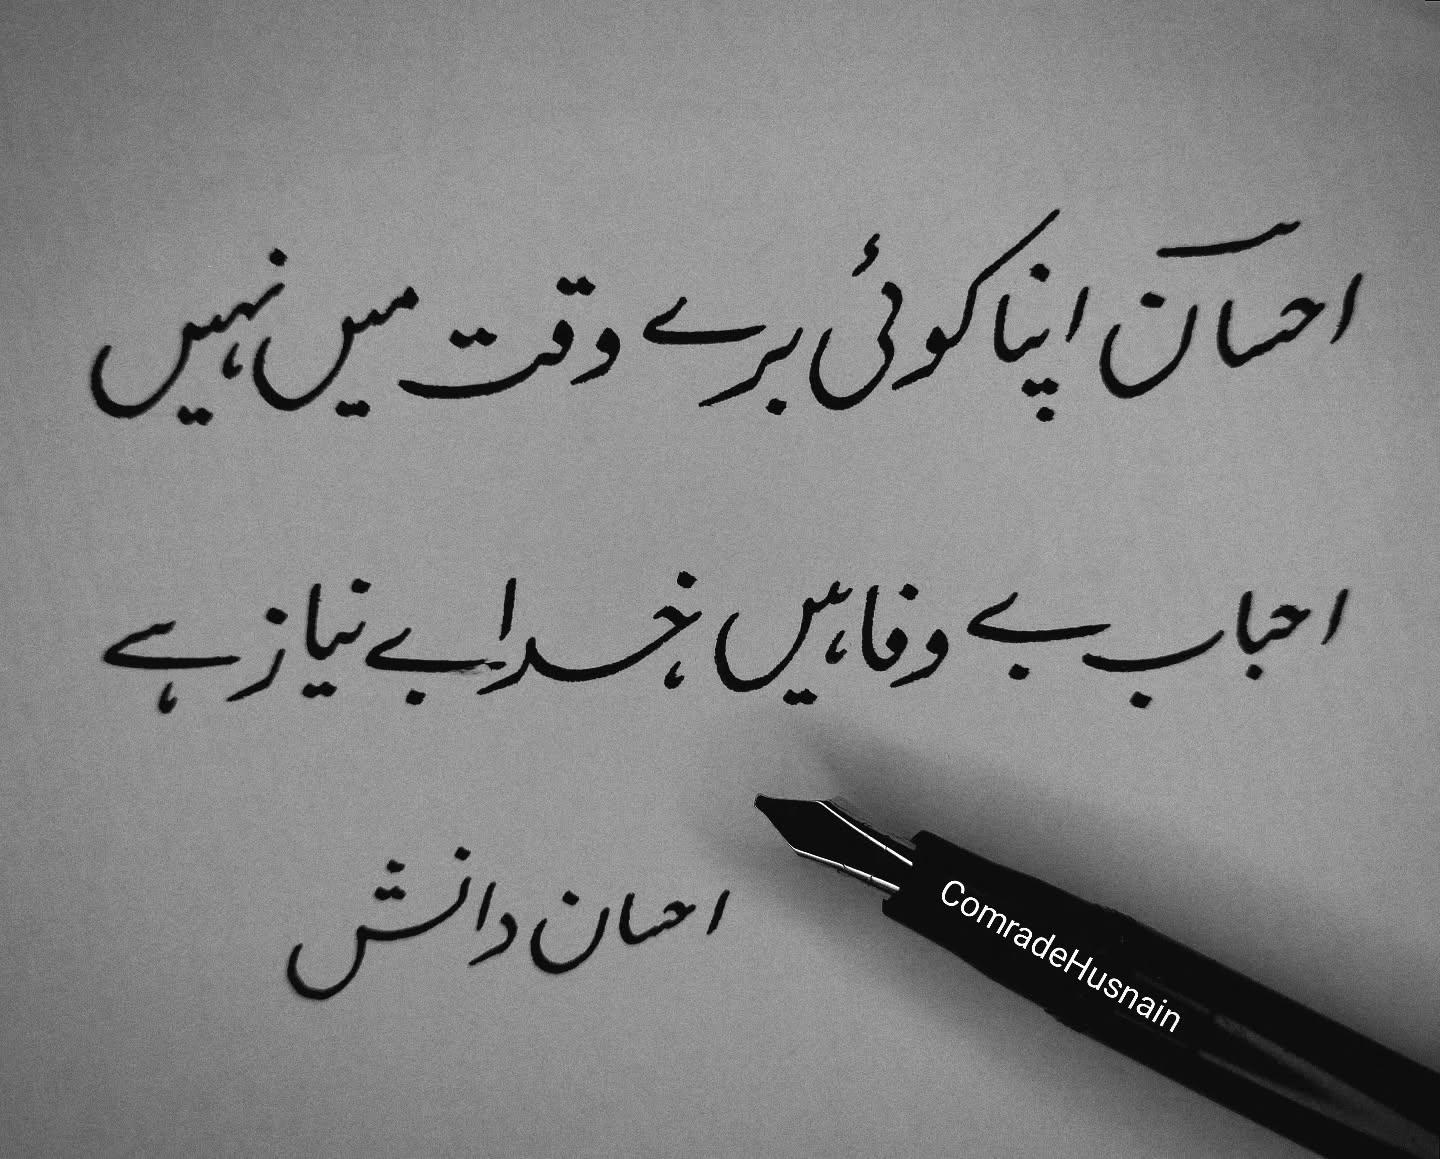 احسانؔ اپنا کوئی برے وقت میں نہیں
احباب بے وفا ہیں خدا بے نیاز ہے
احسان دانش
ComradeHusnain